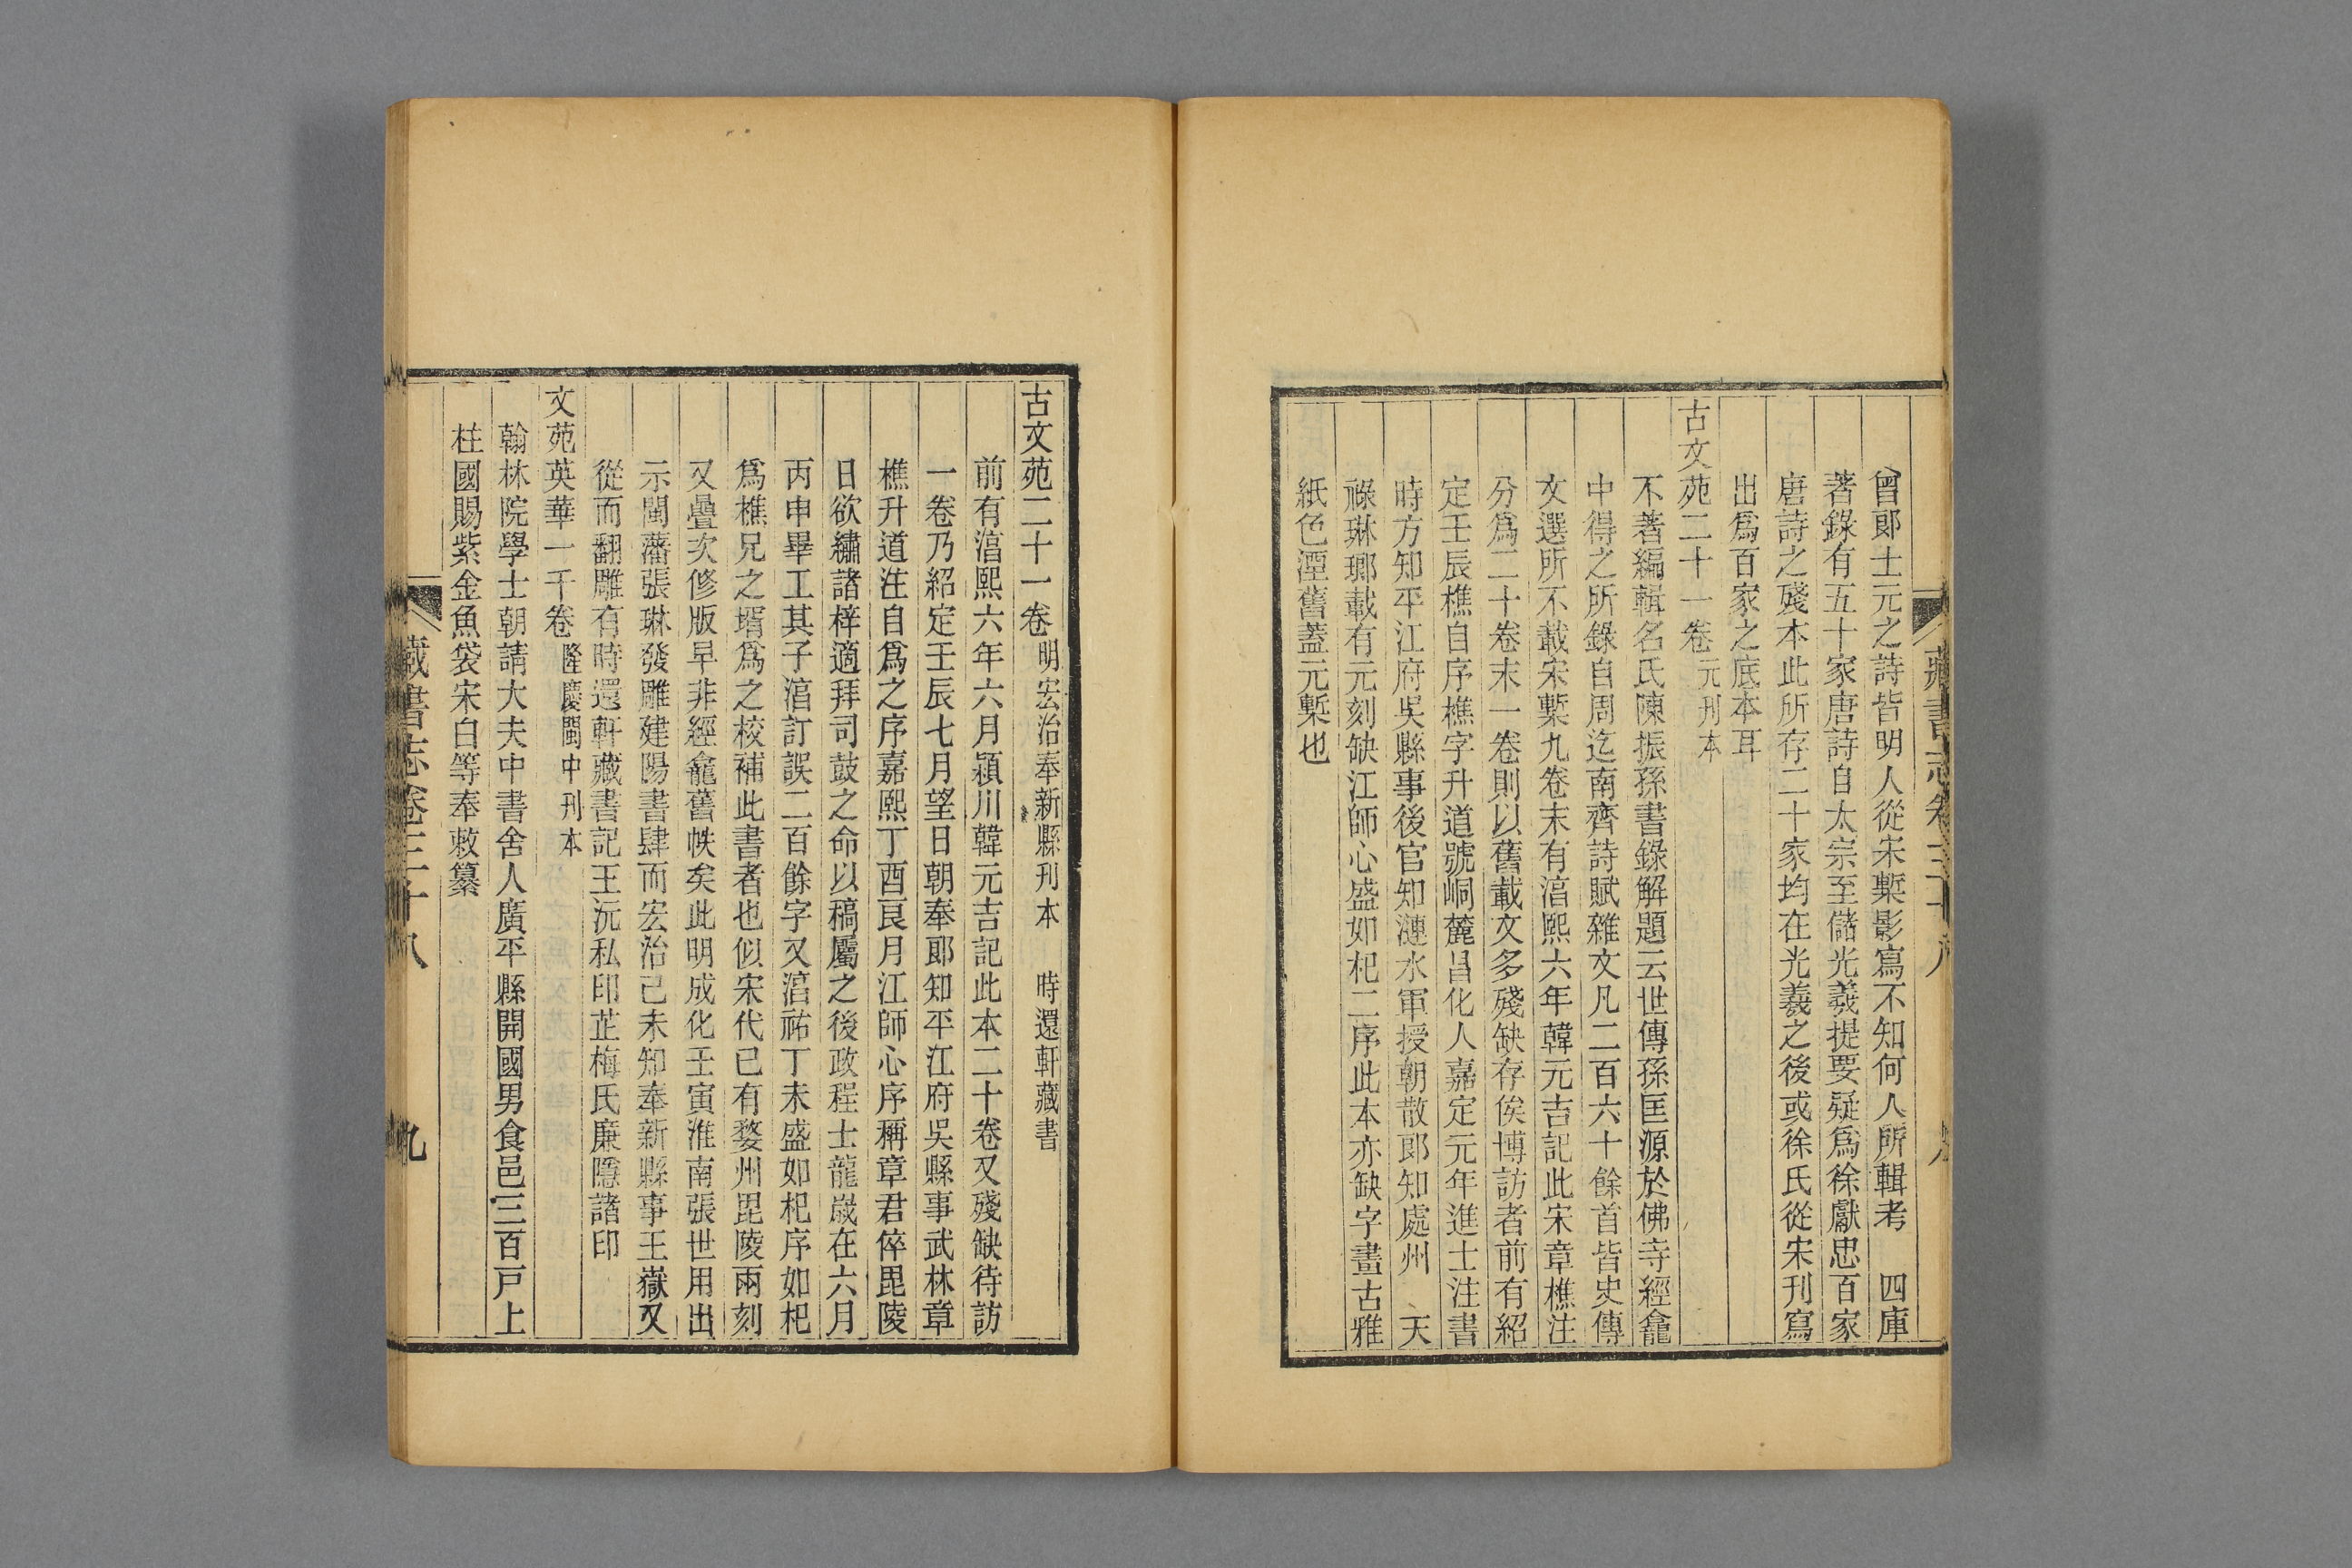 曾郞士元之詩皆明人從宋槧影寫不知何人所輯考　四庫
著錄有五十家唐詩自太宗至儲光羲提要疑爲徐獻忠百家
唐詩之殘本此所存二十家均在光羲之後或徐氏從宋刊寫
出爲百家之底本耳
古文苑二十一卷元刊本
不著編輯名氏陳振孫書錄解題云世傳孫匡源於佛寺經龕
中得之所錄自周迄南齊詩賦雜文凡二百六十餘首皆史傳
文選所不載宋槧九卷末有湻熙六年韓元吉記此宋章樵注
分爲二十卷末一卷則以舊載文多殘缺存俟博訪者前有紹
定壬辰樵自序樵字升道號峒麓昌化人嘉定元年進士注書
時方知平江府吳縣事後官知漣水軍授朝散郞知處州　天
祿琳瑯載有元刻缺江師心盛如杞二序此本亦缺字畫古雅
紙色湮舊蓋元槧也
古文苑二十一卷明宏治奉新縣刋本　時還軒藏書
前有湻熙六年六月潁川韓元吉記此本二十卷又殘缺待訪
一卷乃紹定壬辰七月望日朝奉郞知平江府吳縣事武林章
樵升道注自爲之序嘉熙丁酉艮月江師心序稱章君倅毘陵
日欲繡諸梓適拜司鼓之命以稿屬之後政程士龍歲在六月
丙申畢工其子湻訂誤二百餘字又湻祐丁未盛如杞序如杞
爲樵兄之壻爲之校補此書者也似宋代已有婺州毘陵兩刻
又疊次修版早非經龕舊帙矣此明成化壬寅淮南張世用出
示閩藩張琳發雕建陽書肆而宏治己未知奉新縣事王嶽又
從而翻雕有時還軒藏書記王沅私印芷梅氏廉隱諸印
文苑英華一千卷隆慶閩中刋本
翰林院學士朝請大夫中書舍人廣平縣開國男食邑三百戸上
柱國賜紫金魚袋宋白等奉敕纂
藏書志卷三十八　九